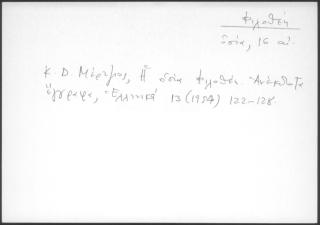 Φιλοθέη
ὁσία, 16 αἰ.
Κ. Δ. Μέρτζιος, Ἡ ὁσία Φιλοθέη. Ἀνέκδοτα
ἔγγραφα, Ἑλληνικά 13 (1954) 122-128.